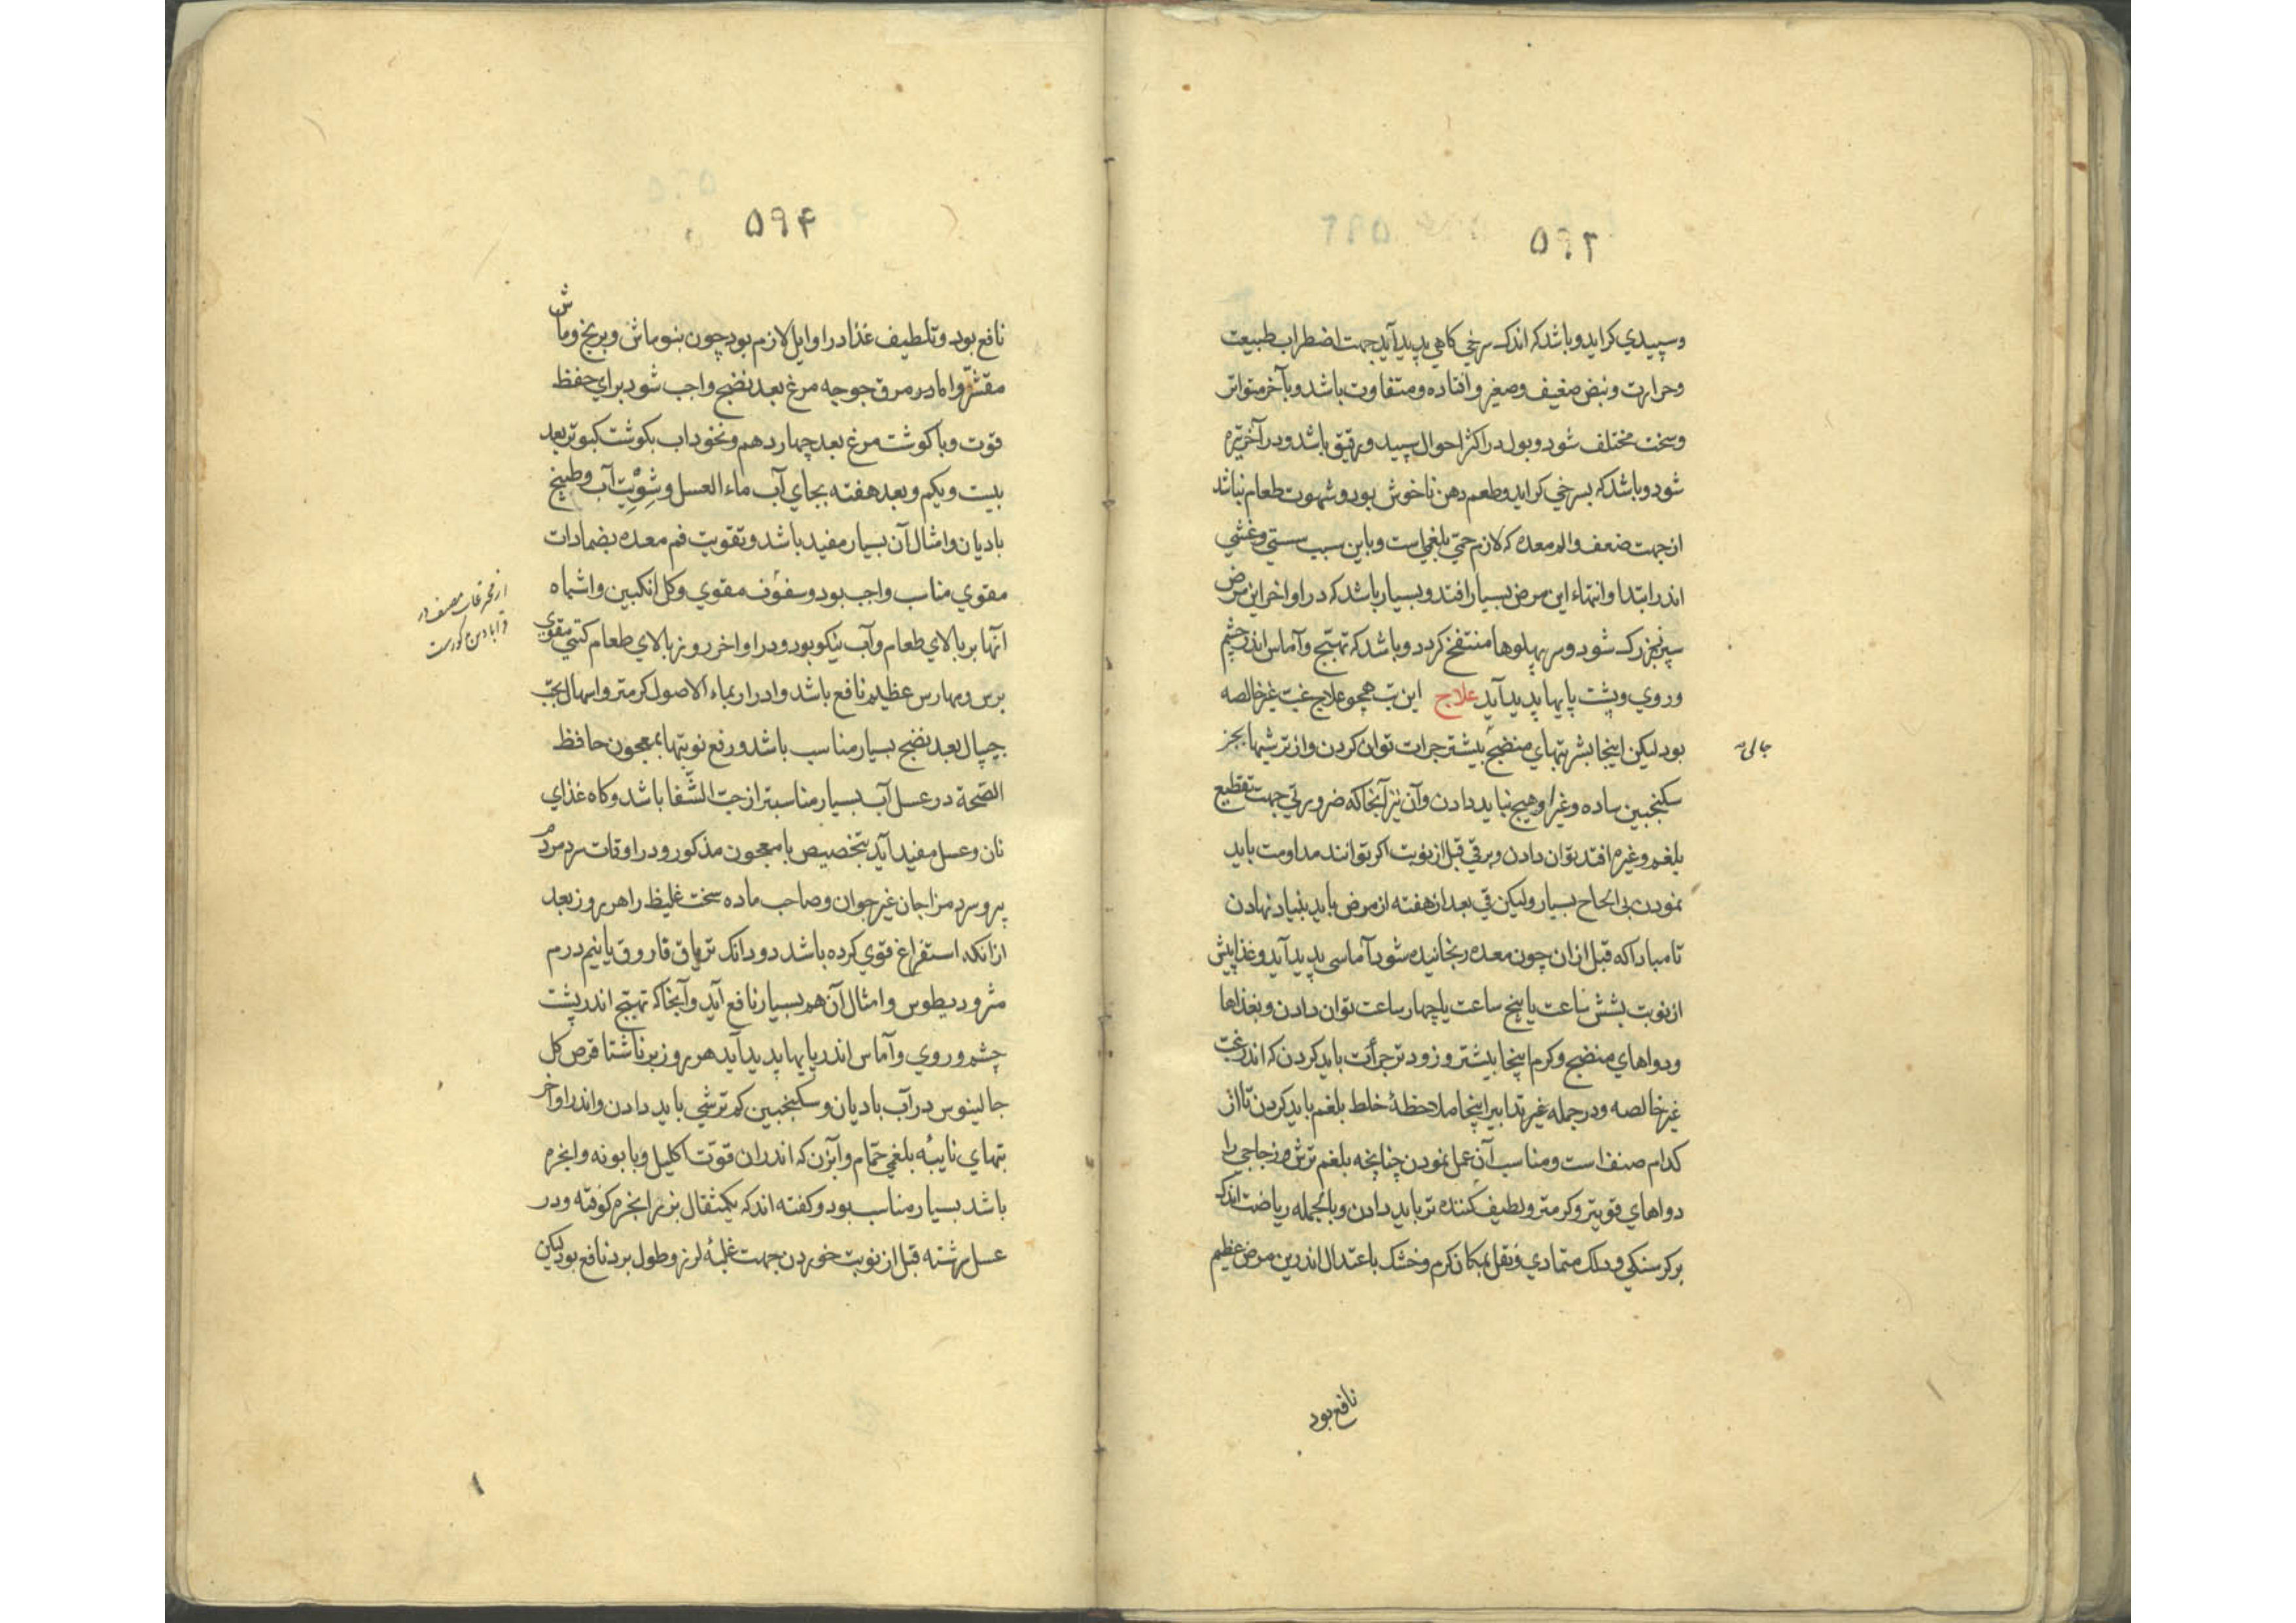 ۵۹۳
وسپیدي کراید و باشد که اندک سرخي کاهي پدید آید جهت اضطراب طبیعت
وحرارت ونبض ضعیف وصغیر وافتاده ومتفاوت باشد وبآخر متواتر
وسخت مختلف شود وبول در اکثر احوال سپید ورقیق باشد ودر آخر تیره
شود وباشد که بسرخي کراید وطعم دهن ناخوش بود وشهوت طعام نباشد
از جهت ضعف والم معده که لازم حمّي بلغمي است وباین سبب سستي وغشي
اندر ابتدا وانتهاء این مرض بسیار افتد وبسیار باشد که در اواخر این مرض
سپرز بزرک شود وسر پهلوها منتفخ کردد وباشد که تهبّج وآماس اندر چشم
وروي وپشت پایها پدید آید علاج این تب همچو علاج غبّ غیر خالصه
بود لیکن اینجا بشربتهاي منضج بیشتر جرات توان کردن واز ترشیها بجز
سکنجبین ساده وغیر او هیچ نباید دادن وآن نیز آنجا که ضرورتي جهت تقطیع
بلغم وغیره افتد توان دادن وبرقي قبل از نوبت اکر توانند مداومت باید
نمودن بي الحاح بسیار ولیکن قي بعد از هفته از مرض باید بنیاد نهادن
تا مبادا که قبل از ان چون معده رنجانیده شود آماسي پدید آید وغذا پیش
از نوبت بشش ساعت یا پنج ساعت یا چهار ساعت توان دادن وبغذاها
ودواهاي منضج وکرم اینجا بیشتر وزودتر جرأت باید کردن که اندر غبّ
غیر خالصه ودر جمله غیر تدابیر اینجا ملاحظهٔ خلط بلغم باید کردن تا از
کدام صنف است ومناسب آن عمل نمودن چنانچه بلغم ترش وزجاجي را
دواهاي قویتر وکرمتر ولطیف کننده تر باید دادن وبالجمله ریاضت اندک
بر کرسنکي ودلک متمادي ونقل بمکان کرم وخشک باعتدال اندرین مرض عظیم
نافع بود
۵۹۴
نافع بود وتلطیف غذا در اوایل لازم بود چون بنوماش وبرنج وماش
مقشّر واما در مرق جوجه مرغ بعد نضج واجب شود براي حفظ
قوت وبا کوشت مرغ بعد چهاردهم ونخوداب بکوشت کبوتر بعد
بیست ویکم وبعد هفته بجاي آب ماء العسل وشِوِیْت آب وطبیخ
بادیان وامثال آن بسیار مفید باشد وتقویت فم معده بضمادات
مقوي مناسب واجب بود وسفوف مقوي وکل انکبین واشباه
آنها بر بالاي طعام وآب نیکو بود ودر اواخر روز بالاي طعام کتني مقوي
برس ومهارس عظیم نافع باشد وادرار بماء الاصول کرمتر واسهال بحبّ
چیپال بعد نضج بسیار مناسب باشد ورفع نوبتها بمعجون حافظ
الصّحة در عسل آب بسیار مناسبتر از حبّ الشّفا باشد وکاه غذاي
نان وعسل مفید آید بتخصیص با معجون مذکور ودر اوقات سرد مردم
پیر وسرد مزاجان غیر جوان وصاحب ماده سخت غلیظ را هر روز بعد
از انکه استفراغ قوي کرده باشد دو دانک تریاق فاروق یا نیم درم
مثرودیطوس وامثال آن هم بسیار نافع آید وآنجا که تهبّج اندر پشت
چشم وروي وآماس اندر پایها پدید آید هر روز بر ناشتا قرص کل
جالینوس در آب بادیان وسکنجبین کم ترشي باید دادن واندر اواخر
تبهاي نایبه بلغمي حمّام وآبزن که اندر ان قوّت اکلیل وبابونه وانجره
باشد بسیار مناسب بود وکفته اند که یکمثقال بزر انجره کوفته ودر
عسل سرشته قبل از نوبت خوردن جهت غلبهٔ لرز وطول برد نافع بود لیکن